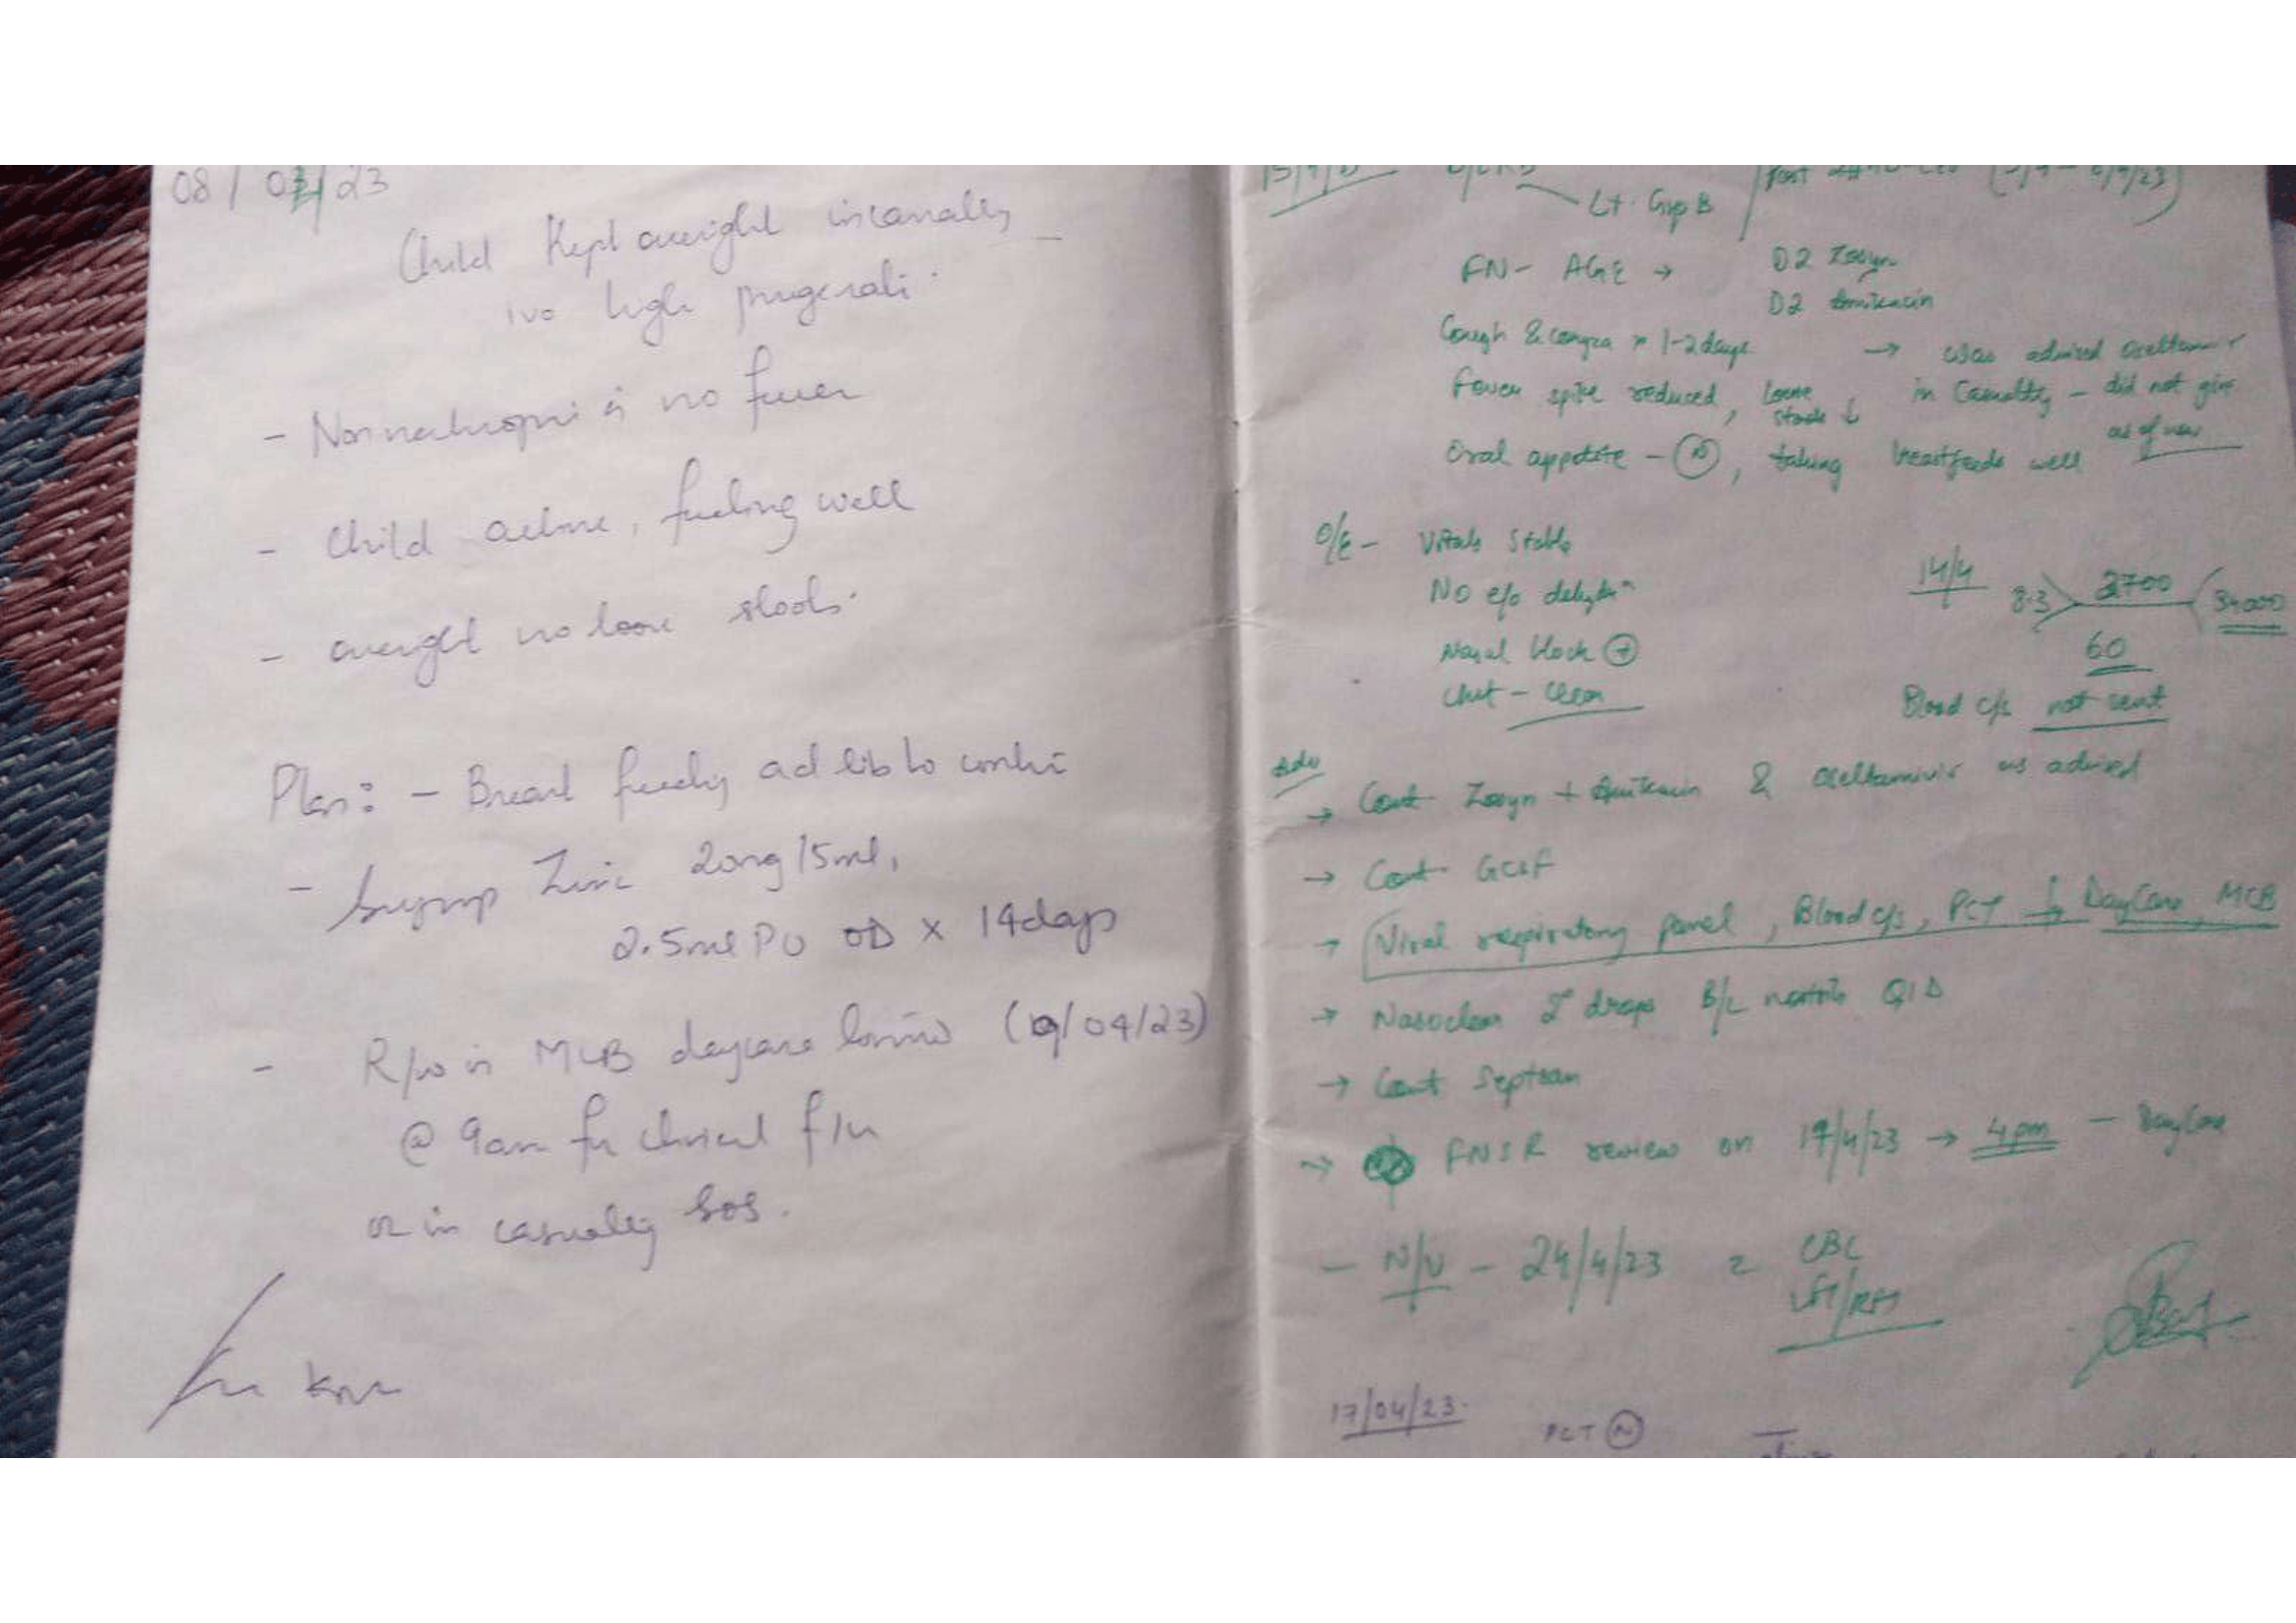 08/04/23
Child Kept overnight in casualty
ivo high purge rate.
- Non neutropenic no fever
- Child active, feeding well
- overnight no loose stools.
Plan: - Breast feeding ad lib to contn
- Syrup Zinc 20mg/5ml,
2.5ml PO OD x 14days
- R/w in MCB daycare (9/04/23)
@ 9am for clinical f/u
or in casualty SOS.
Lt. Grp B
FN- AGE → D2 Zosyn
D2 Amikacin
Cough & x 1-2 days → was advised oseltamivir
Fever spike reduced, Loose stools ↓ in Casualty - did not give
as of now
Oral appetite - (N), taking breastfeeds well
O/E - Vitals Stable
No e/o dehydn
Nasal block +
Chest - Clear
14/4 8.3 2700
60
Blood c/s not sent
Adv
→ Cont Zosyn + Amikacin & oseltamivir as advised
→ Cont GCSF
→ Viral respiratory panel, Blood c/s, PCT → DayCare, MCB
→ Nasoclear 2 drops B/L nostrils QID
→ Cont Septran
→ review on 17/4/23 → 4pm - DayCare
- N/V - 24/4/23 CBC
LFT/RFT
17/04/23.
PCT (N)